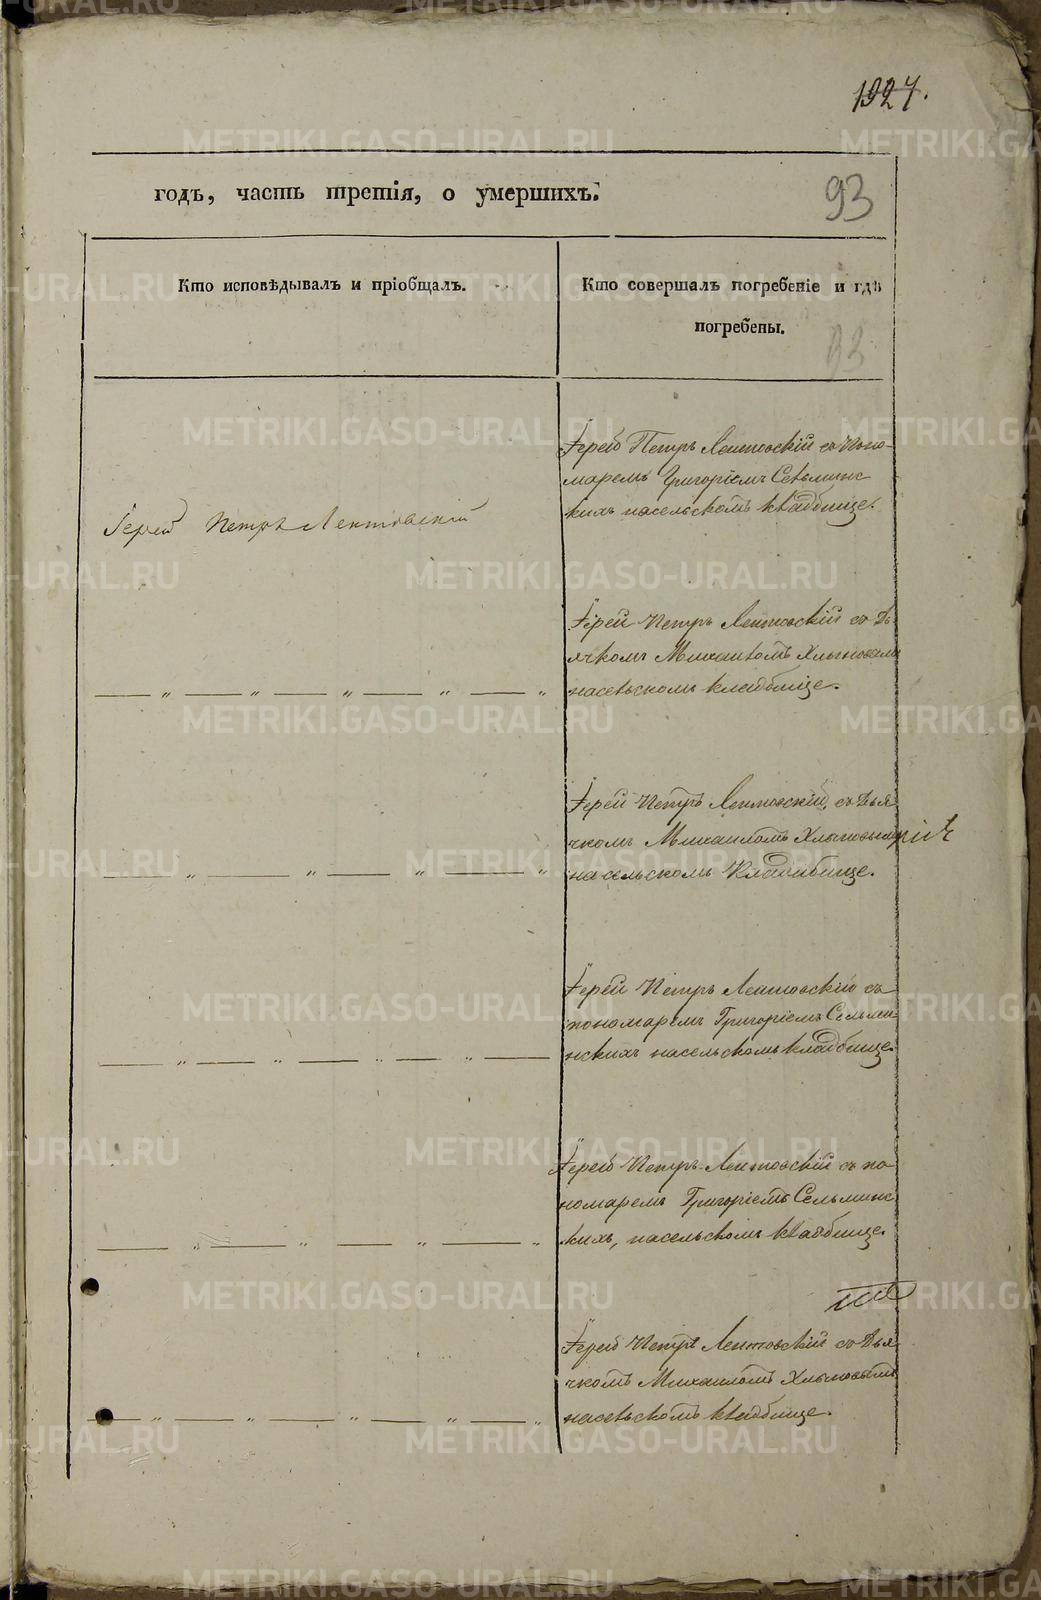 1927.
93
годъ, часть третія, о умершихъ.
Кто исповѣдывалъ и пріобщалъ.
Кто совершалъ погребеніе и гдѣ
погребены.
93
Іерей Петръ Лентовскій
Іерей Петръ Лентовскій съ поно-
маремъ Григоріемъ Сельминс
кихъ насельскомъ кладбище.
Іерей Петръ Лентовскій съ дь
ячкомъ Михаиломъ Хлыновымъ
насельскомъ кладбище.
Іерей Петръ Лентовскій, съ дья
чкомъ Михаиломъ Хлыновым
насельскомъ кладбище.
Іерей Петръ Лентовскій съ
пономаремъ Григоріемъ Сельми
нскихъ насельскомъ кладбище.
Іерей Петръ Лентовскій съ по
номаремъ Григоріемъ Сельминс
кихъ, насельскомъ кладбище.
Іерей Петръ Лентовскій съ дья
чкомъ Михаиломъ Хлыновымъ
насельскомъ кладбище.
METRIKI.GASO-URAL.RU